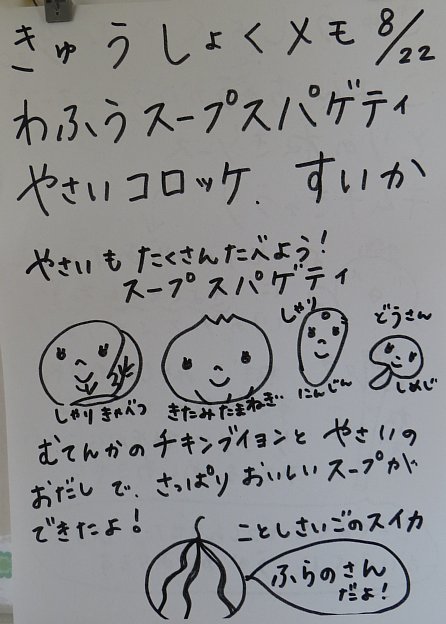 きゅうしょくメモ 8/22
わふうスープスパゲティ
やさいコロッケ. すいか
やさいも たくさんたべよう!
スープスパゲティ
しゃり きゃべつ
きたみ たまねぎ
しゃり
にんじん
どうさん
しめじ
むてんかの チキンブイヨンと やさいの
おだしで、さっぱり おいしいスープが
できたよ!
ことしさいごのスイカ
ふらのさん
だよ!